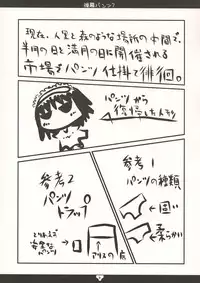 現在、人里と森のような場所の中間で、
半月の日と満月の日に開催される
市場をパンツ仕掛で徘徊。
パンツから
参考1
パンツの種類
固い
柔らかい
参考2
パンツ
トラップ
とりあえず
安全な
パンツ
アリスの